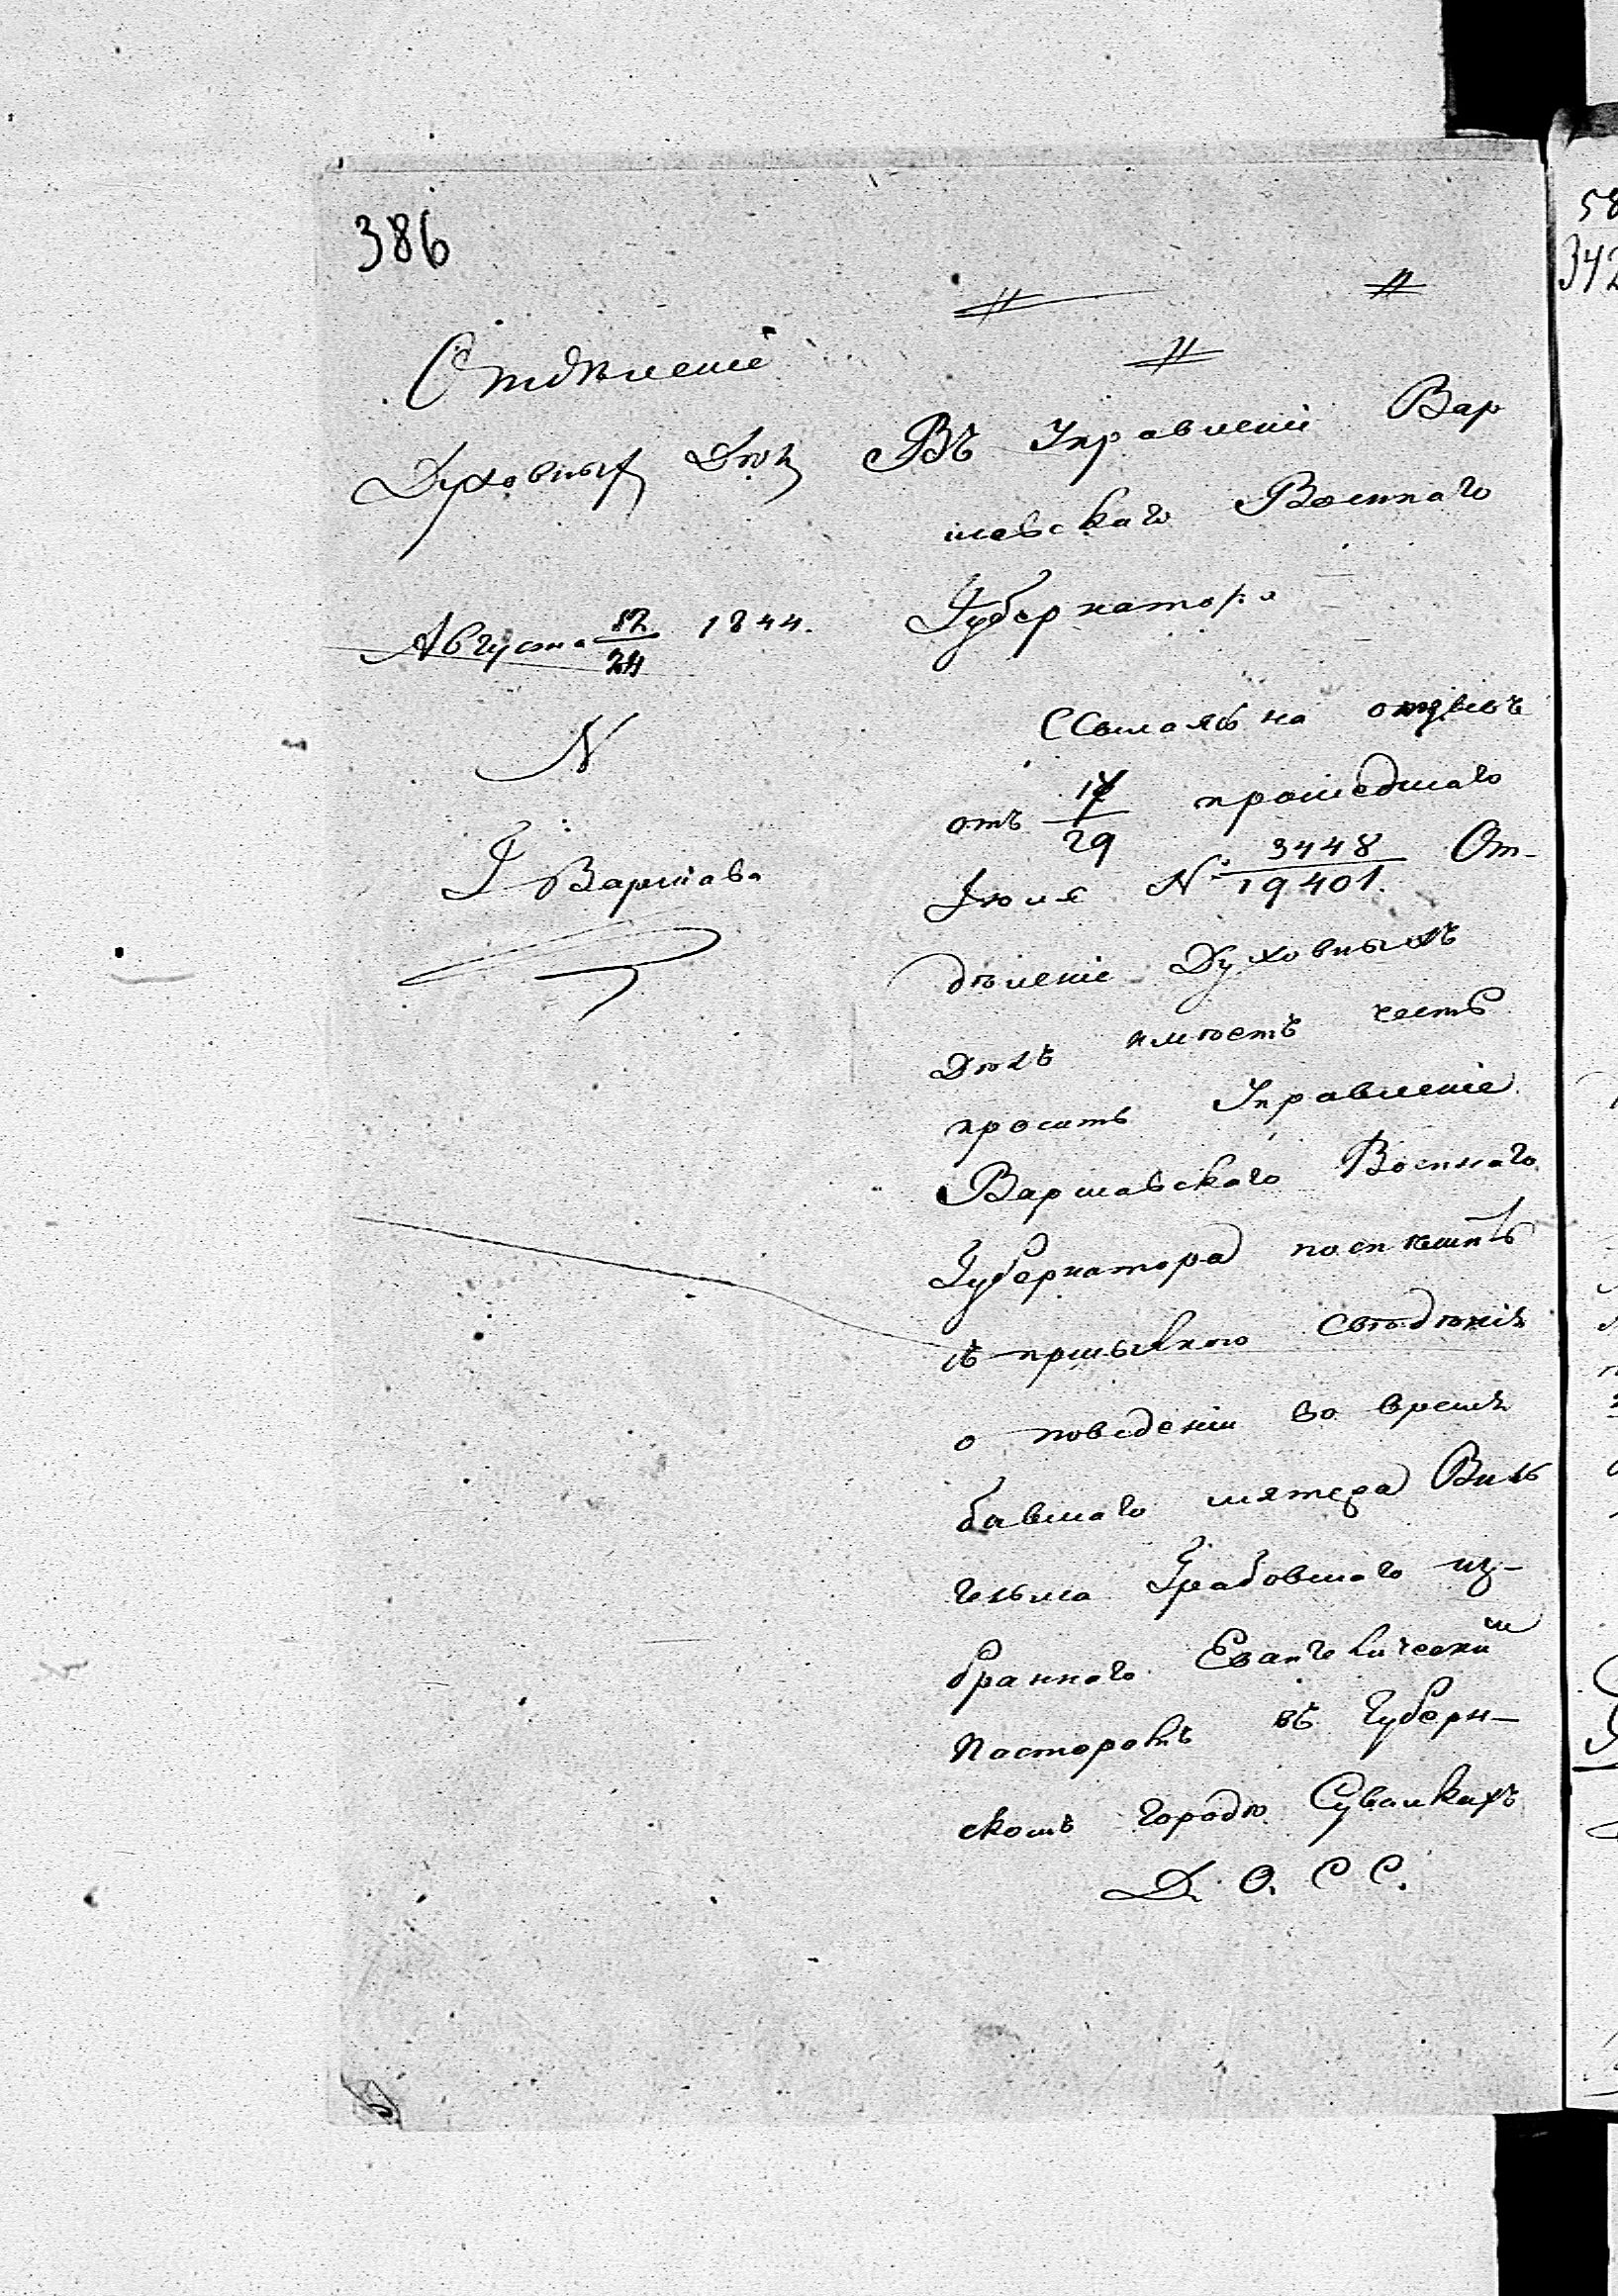 386
Отдѣленіе
Духовныхъ Дѣлъ
Августа 12/24 1844.
N
Г Варшава
Въ Управленіе Вар
шавскаго Военнаго
Губернатора
Ссылаясь на отзывъ
отъ 17/29 прошедшаго
Іюля N 3448/19401. От-
дѣленіе Духовныхъ
Дѣлъ имѣетъ честь
просить Управленіе
Варшавскаго Военнаго
Губернатора поспѣшить
съ присылкою свѣдѣнія
о поведеніи во время
бывшаго мятежа Виль
гельма Грабовскаго из-
браннаго Евангелическимъ
Пасторомъ въ Губерн-
скомъ городѣ Сувалкахъ
Д. О. С С.
58
342